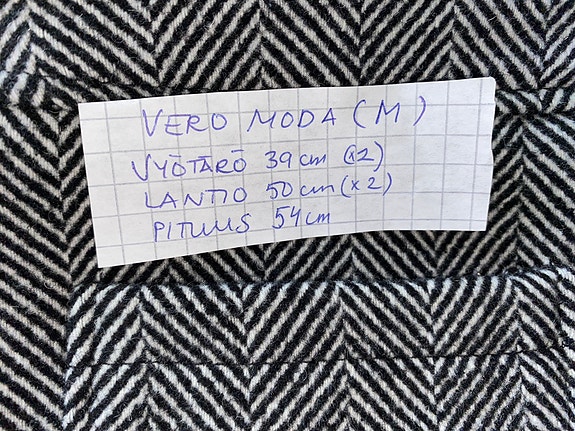 VERO MODA (M)
VYÖTÄRÖ 39 cm (x2)
LANTIO 50 cm (x2)
PITUUS 54 cm